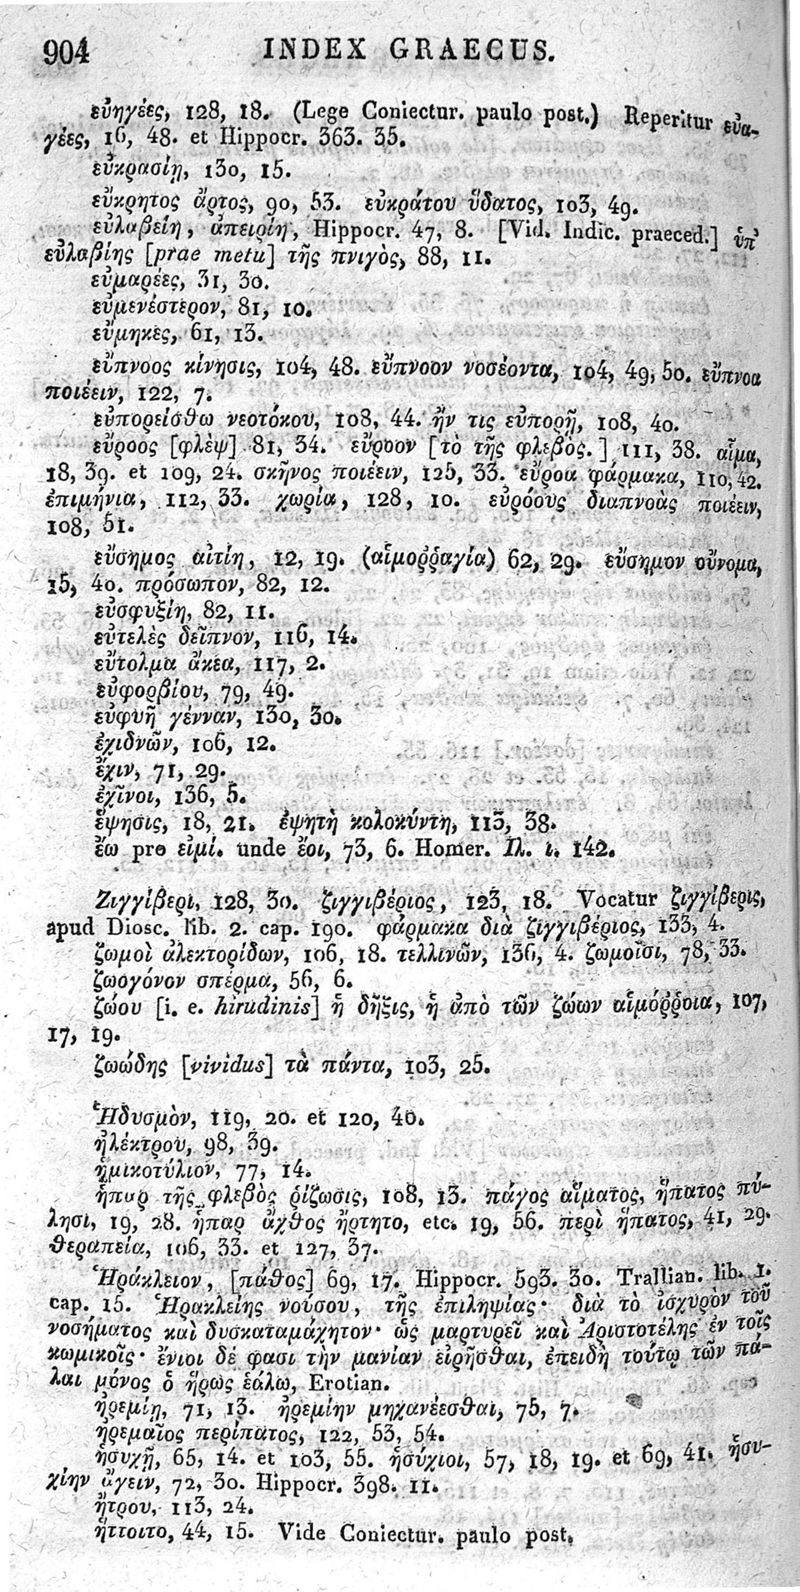 904 INDEX GRAECUS.
εὐηγέες, 128, 18. (Lege Coniectur. paulo post.) Reperitur εὐα-
γέες, 16, 48. et Hippocr. 363. 35.
εὐκρασίῃ, 130, 15.
εὔκρητος ἄρτος, 90, 53. εὐκράτου ὕδατος, 103, 49.
εὐλαβείη, ἀπειρίη, Hippocr. 47, 8. [Vid. Indic. praeced.] ὑπ'
εὐλαβίης [prae metu] τῆς πνιγὸς, 88, 11.
εὐμαρέες, 31, 30.
εὐμενέστερον, 81, 10.
εὐμηκὲς, 61, 13.
εὔπνοος κίνησις, 104, 48. εὔπνοον νοσέοντα, 104, 49, 50. εὔπνοα
ποιέειν, 122, 7.
εὐπορείσθω νεοτόκου, 108, 44. ἤν τις εὐπορῇ, 108, 40.
εὔροος [φλὲψ] 81, 34. εὔροον [τὸ τῆς φλεβὸς.] 111, 38. αἷμα,
18, 39. et 109, 24. σκῆνος ποιέειν, 125, 33. εὔροα φάρμακα, 110, 42.
ἐπιμήνια, 112, 33. χωρία, 128, 10. εὐρόους διαπνοὰς ποιέειν,
108, 51.
εὔσημος αἰτίη, 12, 19. (αἱμοῤῥαγία) 62, 29. εὔσημον οὔνομα,
15, 40. πρόσωπον, 82, 12.
εὐσφυξίη, 82, 11.
εὐτελὲς δεῖπνον, 116, 14.
εὔτολμα ἄκεα, 117, 2.
εὐφορβίου, 79, 49.
εὐφυῆ γένναν, 130, 30.
ἐχιδνῶν, 106, 12.
ἔχιν, 71, 29.
ἐχῖνοι, 136, 5.
ἕψησις, 18, 21. ἑψητὴ κολοκύντη, 113, 38.
ἔω pro εἰμί. unde ἔοι, 73, 6. Homer. Ιλ. ι. 142.
Ζιγγίβερι, 128, 30. ζιγγιβέριος, 123, 18. Vocatur ζιγγίβερις,
apud Diosc. lib. 2. cap. 190. φάρμακα διὰ ζιγγιβέριος, 133, 4.
ζωμοὶ ἀλεκτορίδων, 106, 18. τελλινῶν, 136, 4. ζωμοῖσι, 78, 33.
ζωογόνον σπέρμα, 56, 6.
ζώου [i. e. hirudinis] ἡ δῆξις, ἡ ἀπὸ τῶν ζώων αἱμόῤῥοια, 107,
17, 19.
ζωώδης [vividus] τὰ πάντα, 103, 25.
Ἡδυσμὸν, 119, 20. et 120, 40.
ἠλέκτρου, 98, 39.
ἡμικοτύλιον, 77, 14.
ἧπαρ τῆς φλεβὸς ῥίζωσις, 108, 13. πάγος αἵματος, ἥπατος πύ-
λησι, 19, 28. ἧπαρ ἄχθος ἤρτητο, etc. 19, 56. περὶ ἥπατος, 41, 29.
θεραπεία, 106, 33. et 127, 37.
Ἡράκλειον, [πάθος] 69, 17. Hippocr. 593. 30. Trallian. lib. 1.
cap. 15. Ἡρακλείης νούσου, τῆς ἐπιληψίας· διὰ τὸ ἰσχυρὸν τοῦ
νοσήματος καὶ δυσκαταμάχητον· ὡς μαρτυρεῖ καὶ Ἀριστοτέλης ἐν τοῖς
κωμικοῖς· ἔνιοι δέ φασι τὴν μανίαν εἰρῆσθαι, ἐπειδὴ τούτῳ τῶν πά-
λαι μόνος ὁ ἥρως ἑάλω, Erotian.
ἠρεμίῃ, 71, 13. ἠρεμίην μηχανέεσθαι, 75, 7.
ἠρεμαῖος περίπατος, 122, 53, 54.
ἡσυχῆ, 65, 14. et 103, 55. ἡσύχιοι, 57, 18, 19. et 69, 41. ἡσυ-
χίην ἄγειν, 72, 30. Hippocr. 398. 11.
ἤτρου, 113, 24.
ἥττοιτο, 44, 15. Vide Coniectur. paulo post.